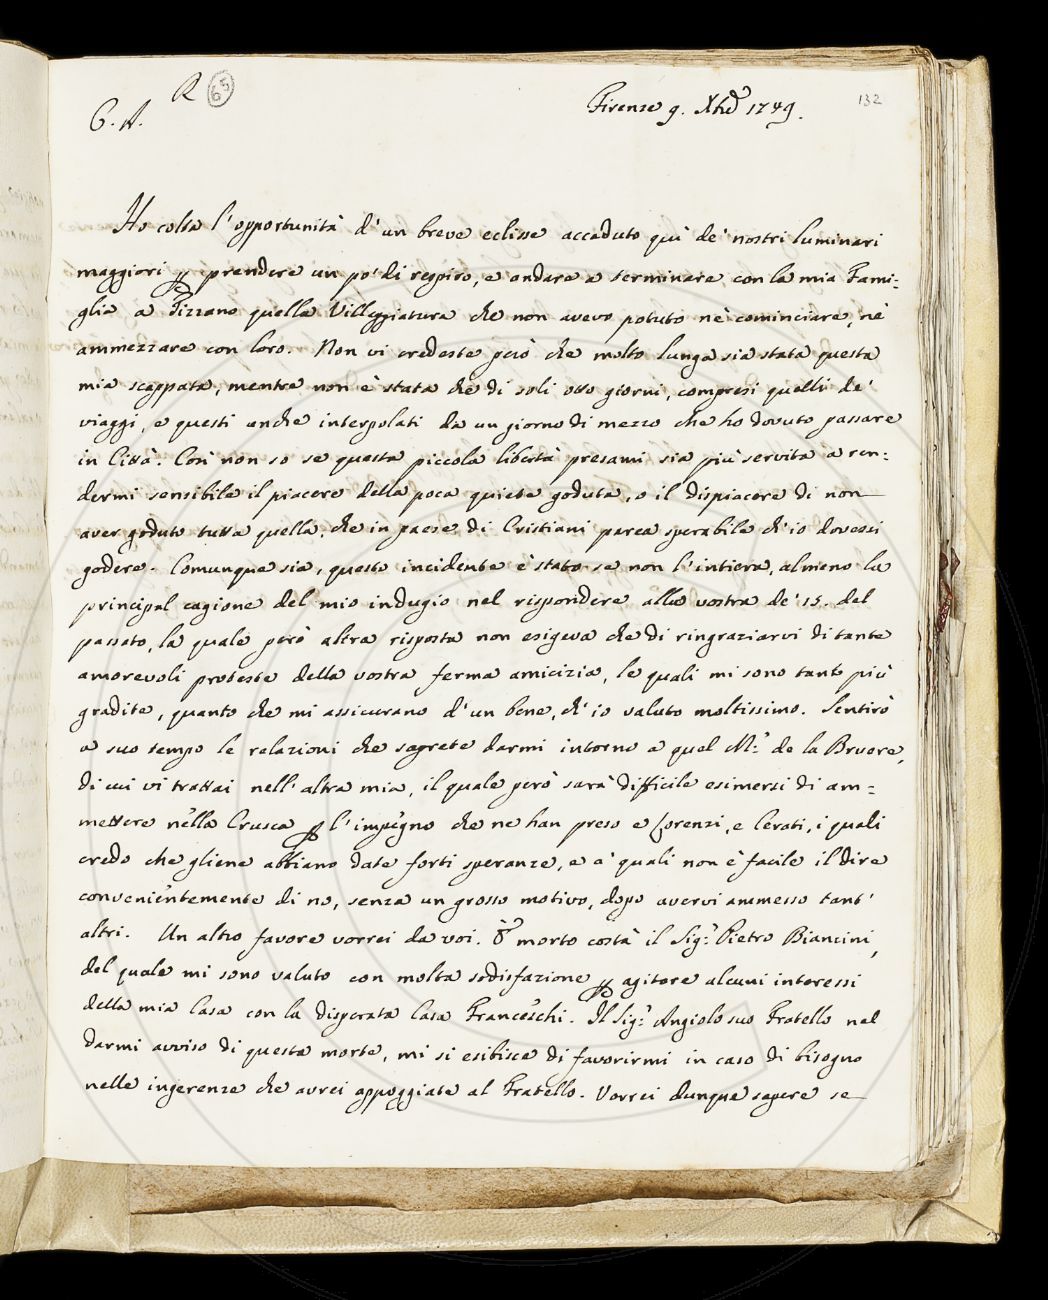 R 65
Firenze 9. Xbre 1749. 132
C. A.
Ho colta l'opportunità d'un breve eclisse accaduto quì de' nostri luminari
maggiori p prendere un po' di respiro, e andare a terminare con la mia Fami=
glia a Fizzano quella Villeggiatura che non avevo potuto nè cominciare, nè
ammezzare con loro. Non vi credeste però che molto lunga sia stata questa
mia scappata, mentre non è stata che di soli otto giorni, compresi quelli de'
viaggi, e questi anche interpolati da un giorno di mezzo che ho dovuto passare
in Città. Così non so se questa piccola libertà presami sia più servita a ren=
dermi sensibile il piacere della poca quiete goduta, o il dispiacere di non
aver goduto tutta quella, che in paese di Cristiani parea sperabile ch'io dovessi
godere. Comunque sia, questo incidente è stato se non l'intiera, almeno la
principal cagione del mio indugio nel rispondere alla vostra de' 15. del
passato, la quale però altra risposta non esigeva che di ringraziarvi di tante
amorevoli proteste della vostra ferma amicizia, le quali mi sono tanto più
gradite, quanto che mi assicurano d'un bene, ch'io valuto moltissimo. Sentirò
a suo tempo le relazioni che saprete darmi intorno a quel Mr. de la Bruere,
di cui vi trattai nell'altra mia, il quale però sarà difficile esimersi di am=
mettere nella Crusca p l'impegno che ne han preso e Lorenzi, e Cerati, i quali
credo che gliene abbiano date forti speranze, e a' quali non è facile il dire
convenientemente di no, senza un grosso motivo, dopo avervi ammesso tant'
altri. Un altro favore vorrei da voi. È morto costà il Sigr. Pietro Biancini,
del quale mi sono valuto con molta sodisfazione p agitare alcuni interessi
della mia Casa con la disperata Casa Franceschi. Il Sigr. Angiolo suo Fratello nel
darmi avviso di questa morte, mi si esibisce di favorirmi in caso di bisogno
nelle ingerenze che avrei appoggiate al Fratello. Vorrei dunque sapere se